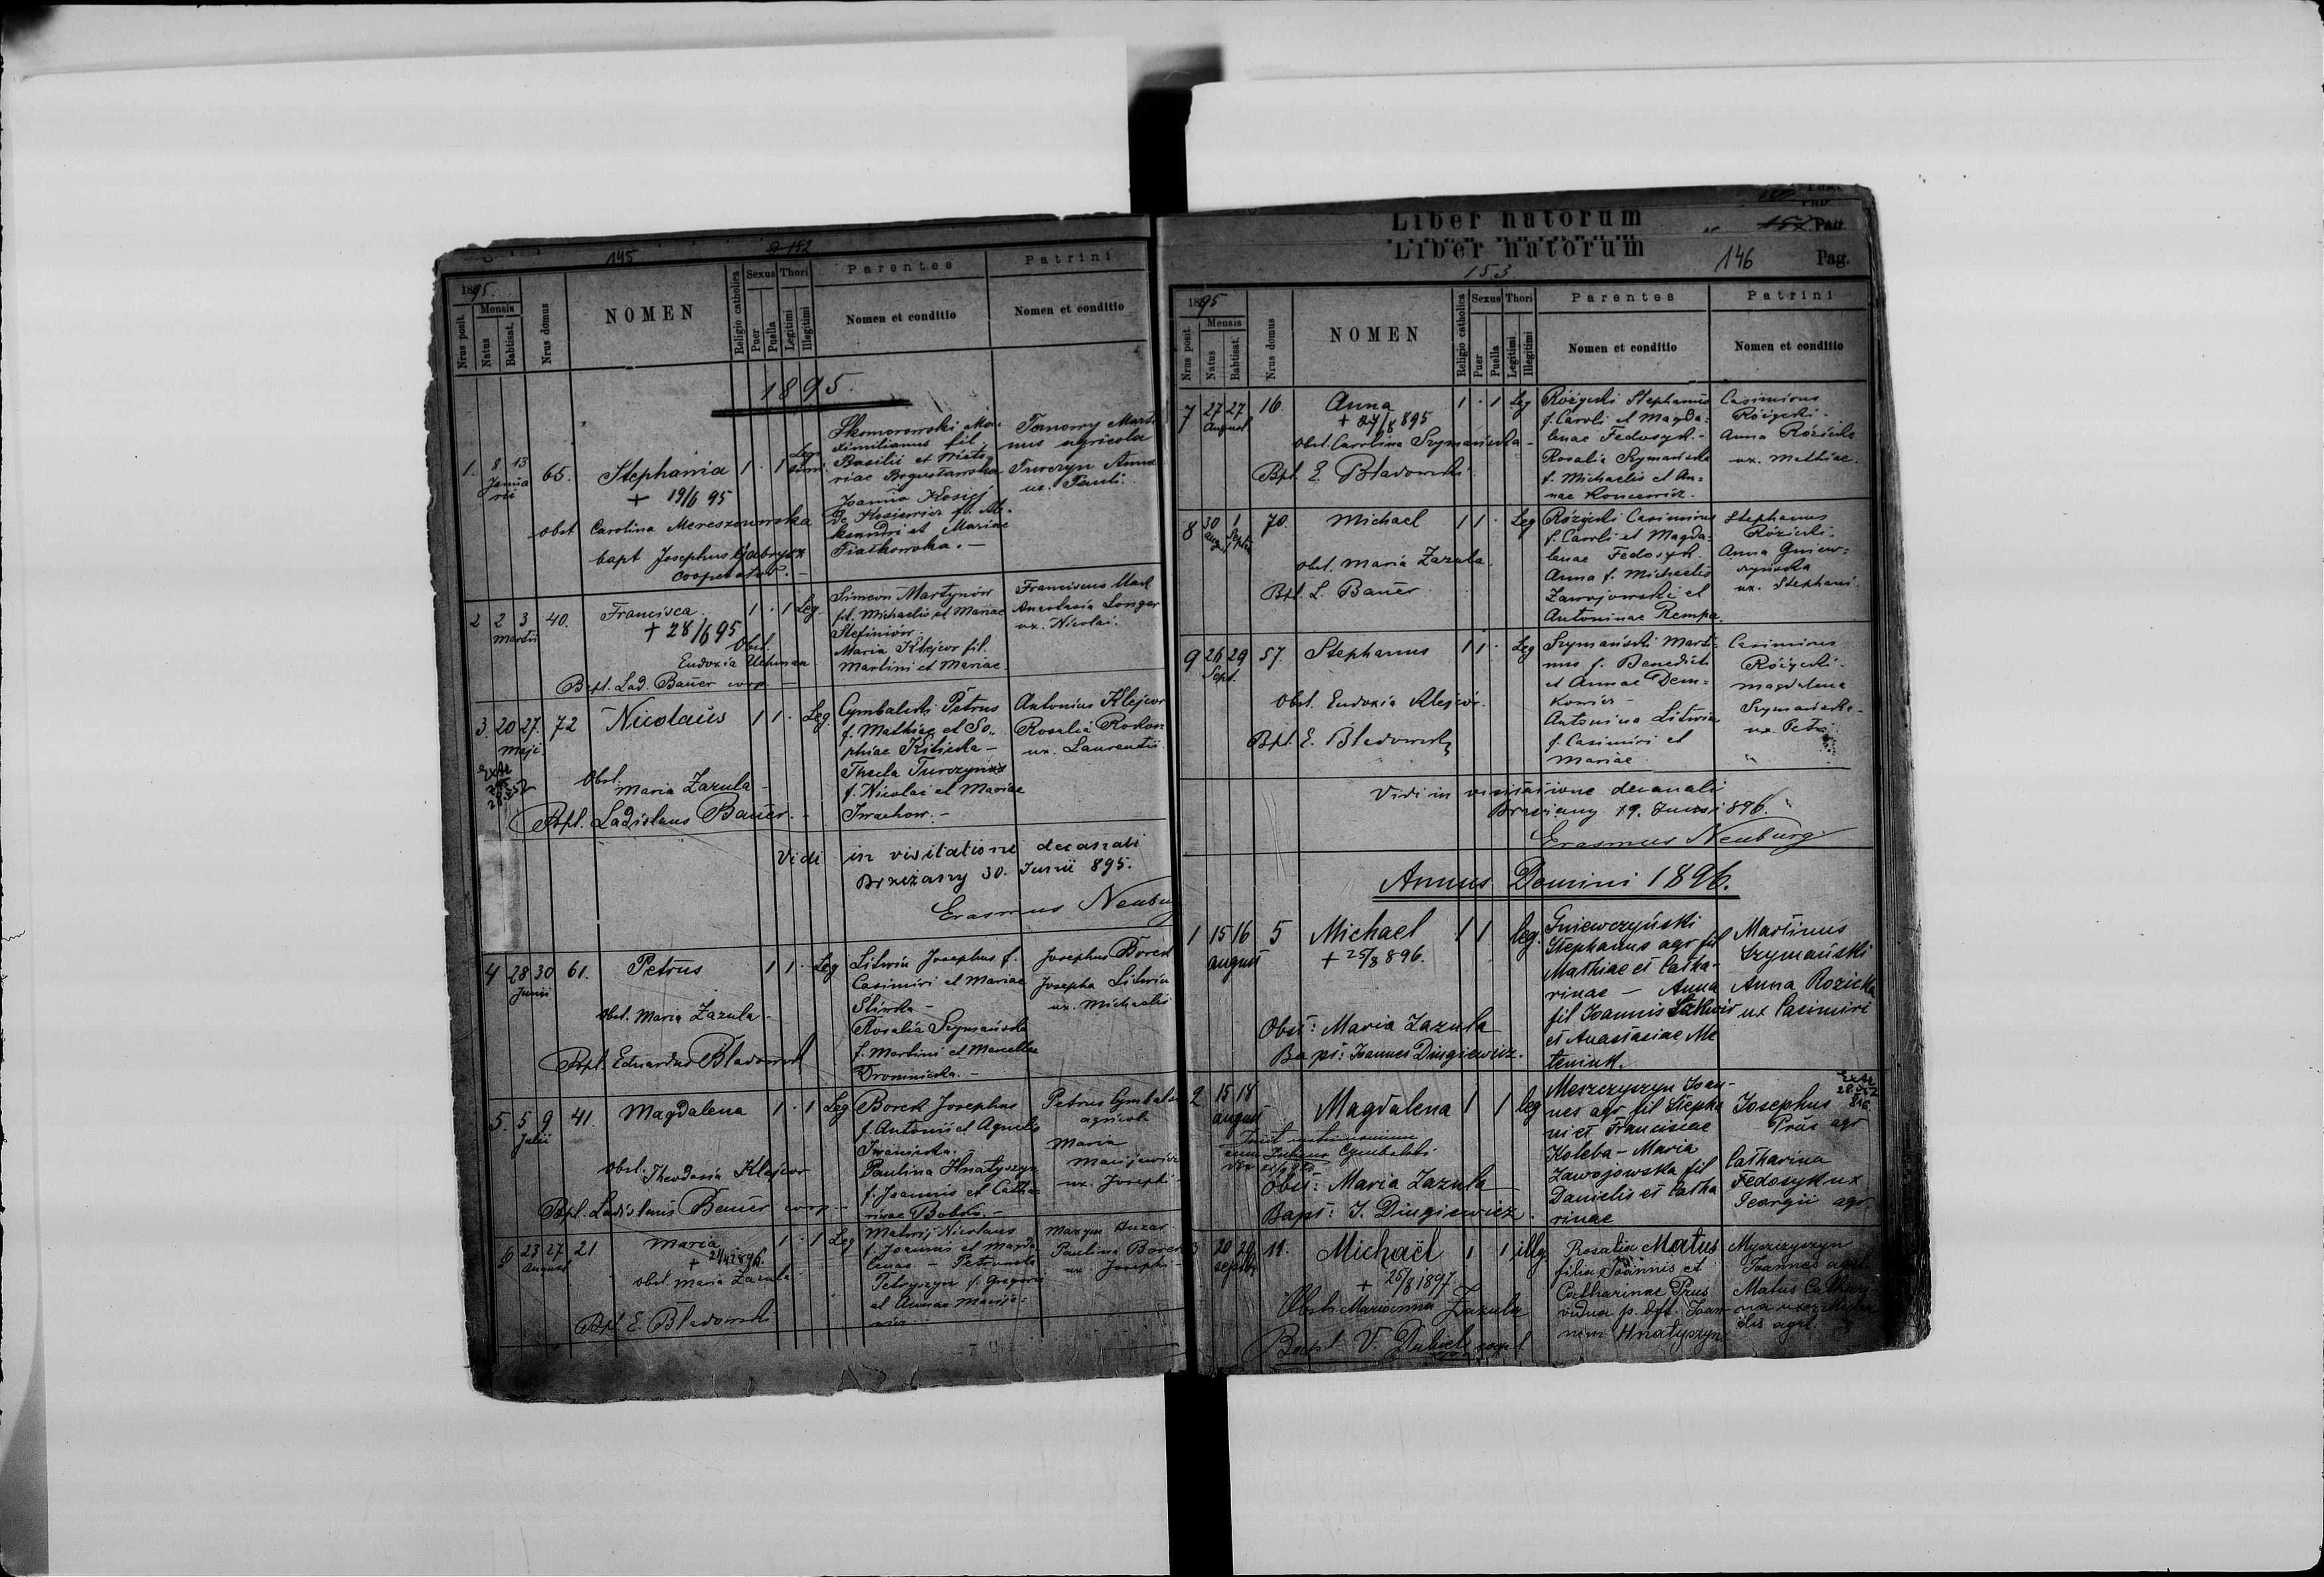 145
152
1895.
Nrus posit.
Mensis
Natus
Babtisat.
Nrus domus
NOMEN
Religio catholica
Sexus
Puer
Puella
Thori
Legitimi
Illegitimi
Parentes
Nomen et conditio
Patrini
Nomen et conditio
1895.
1. 8 13 Januarii 65. Stephania 1 · 1 Leg.
+ 19/6 95
obst Carolina Mereszowska
bapt Josephus Gabrysz
cooperator. -
Skomorowski Ma-
ximilianus fil.
Basilii et Ma
riae Bogusławska
Joanna Kosiej
de Kosiewicz f. Ale
ksandri et Mariae
Fiałkowska. -
Tarnowy Marti
nus agricola
Turczyn Anna
ux. Pauli.
2 2 3 Martii 40. Francisca 1 · 1 Leg.
+ 28/6 95
Obst.
Eudoxia Uchman
Bapt. Lad. Bauer coop -
Simeon Martynów
fil. Michaelis et Mariae
Stefiniów
Maria Klejcor fil.
Martini et Mariae
Franciscus Mack
Anastasia Longer
ux. Nicolai.
3. 20 27. Maji 72 Nicolaus 1 1 · Leg.
Obst.
Maria Zazula -
Bpt. Ladislaus Bauer. -
Cymbalisti Petrus
f. Mathiae et So-
phiae Kilicka -
Thecla Turczyn
f. Nicolai et Mariae
Iwachow. -
Antonius Klejcor
Rosalia Rokosz
ux. Laurentii
Vidi in visitatione decanali
Brzeżany 30. Junii 895.
Erasmus Neuburg
4 28 30 Junii 61. Petrus 1 1 · Leg
obst. Maria Zazula -
Bpt. Eduardus Bladowski
Litwin Josephus f.
Casimiri et Mariae
Śliwska -
Rosalia Szymańska
f. Martini et Marcellae
Dromnicka. -
Josephus Borek
Josepha Litwin
ux. Michaelis
5. 5 9 Julii 41. Magdalena 1 · 1 Leg
Obst. Theodosia Klejcor
Bpt. Ladislaus Bauer coop. -
Borek Josephus
f. Antonii et Agnetis
Iwanicka.
Paulina Hnatyszyn
f. Joannis et Catha-
rinae Bobko. -
Petrus Cymbalis
agricola
Maria
Macijewicz
ux. Josephi -
6 23 27 August 21 Maria 1 · 1 Leg
+ 21/12 896.
obst. Maria Zazula -
Bpt. E. Bladowski
Matwij Nicolaus
f. Joannis et Magda
lenae - Petronela
Petryszyn f. Gregorii
et Annae Macije-
wicz
Maxym Huzar
Paulina Borek
ux. Josephi -
Liber natorum
Liber natorum
153
146 Pag.
1895
Nrus posit
Mensis
Natus
Babtisat.
Nrus domus
NOMEN
Religio catholica
Sexus
Puer
Puella
Thori
Legitimi
Illegitimi
Parentes
Nomen et conditio
Patrini
Nomen et conditio
7 27 27 August 16. Anna 1 · 1 Leg
+ 27/8 895
obst. Carolina Szymańska -
Bpt. E. Bladowski
Różycki Stephanus
f. Caroli et Magda-
lenae Fedosyk. -
Rosalia Szymańska
f. Michaelis et An-
nae Koncewicz.
Casimirus
Różycki -
Anna Różicka
ux. Mathiae.
8 30 Aug. 1 Septbr 70. Michael 1 1 · Leg
obst. Maria Zazula.
Bpt. L. Bauer.
Różycki Casimirus
f. Caroli et Magda-
lenae Fedosyk.
Anna f. Michaelis
Zawojowski et
Antoninae Rempa.
Stephanus
Różicki.
Anna Gniew-
czyńska
ux. Stephani.
9 26 29 Sept. 57. Stephanus 1 1 · Leg
Obst. Eudoxia Klejcor.
Bpt. E. Bladowski
Szymański Marti-
nus f. Benedicti
et Annae Dem-
kowicz -
Antonina Litwin
f. Casimiri et
Mariae.
Casimirus
Różycki -
Magdalena
Szymańska -
ux. Petri
Vidi in visitatione decanali
Brzeżany 19. Junii 896.
Erasmus Neuburg
Annus Domini 1896.
1 15 16 August 5 Michael 1 1 leg.
+ 25/8 896.
Obst: Maria Zazula
Bapt: Joannes Dingiewicz.
Gniewczyński
Stephanus agr fil
Mathiae et Catha-
rinae - Anna
fil Joannis
et Anastasiae Me
teniuk.
Martinus
Szymański
Anna Rozicka
ux Casimiri
2 15 18 August Magdalena 1 1 leg
Obst: Maria Zazula
Bapt: J. Dingiewicz.
Meszczyszyn Joan-
nes agr fil Stepha
ni et Franciscae
Koleba - Maria
Zawojowska fil
Danielis et Catha
rinae
Josephus
Prus agr
Catharina
Fedosyk ux
Georgii agr.
3 20 20 septbr 11. Michaël 1 1 illg.
+ 25/8 1897
Obstr. Marianna Zazula
Bapt V. Dubiel coop
Rosalia Matus
filia Joannis et
Catharinae Prus
vidua p. dft. Joan-
nem Hnatyszyn
Myszczyszyn
Joannes agrl.
Matus Cathari
na uxor Micha
elis agrl.